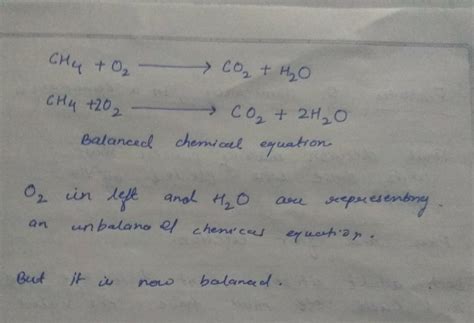 CH₄ + O₂ ⟶ CO₂ + H₂O
CH₄ + 2O₂ ⟶ CO₂ + 2H₂O
Balanced chemical equation
O₂ in left and H₂O are representing
an unbalanced chemical equation.
But it is now balanced.